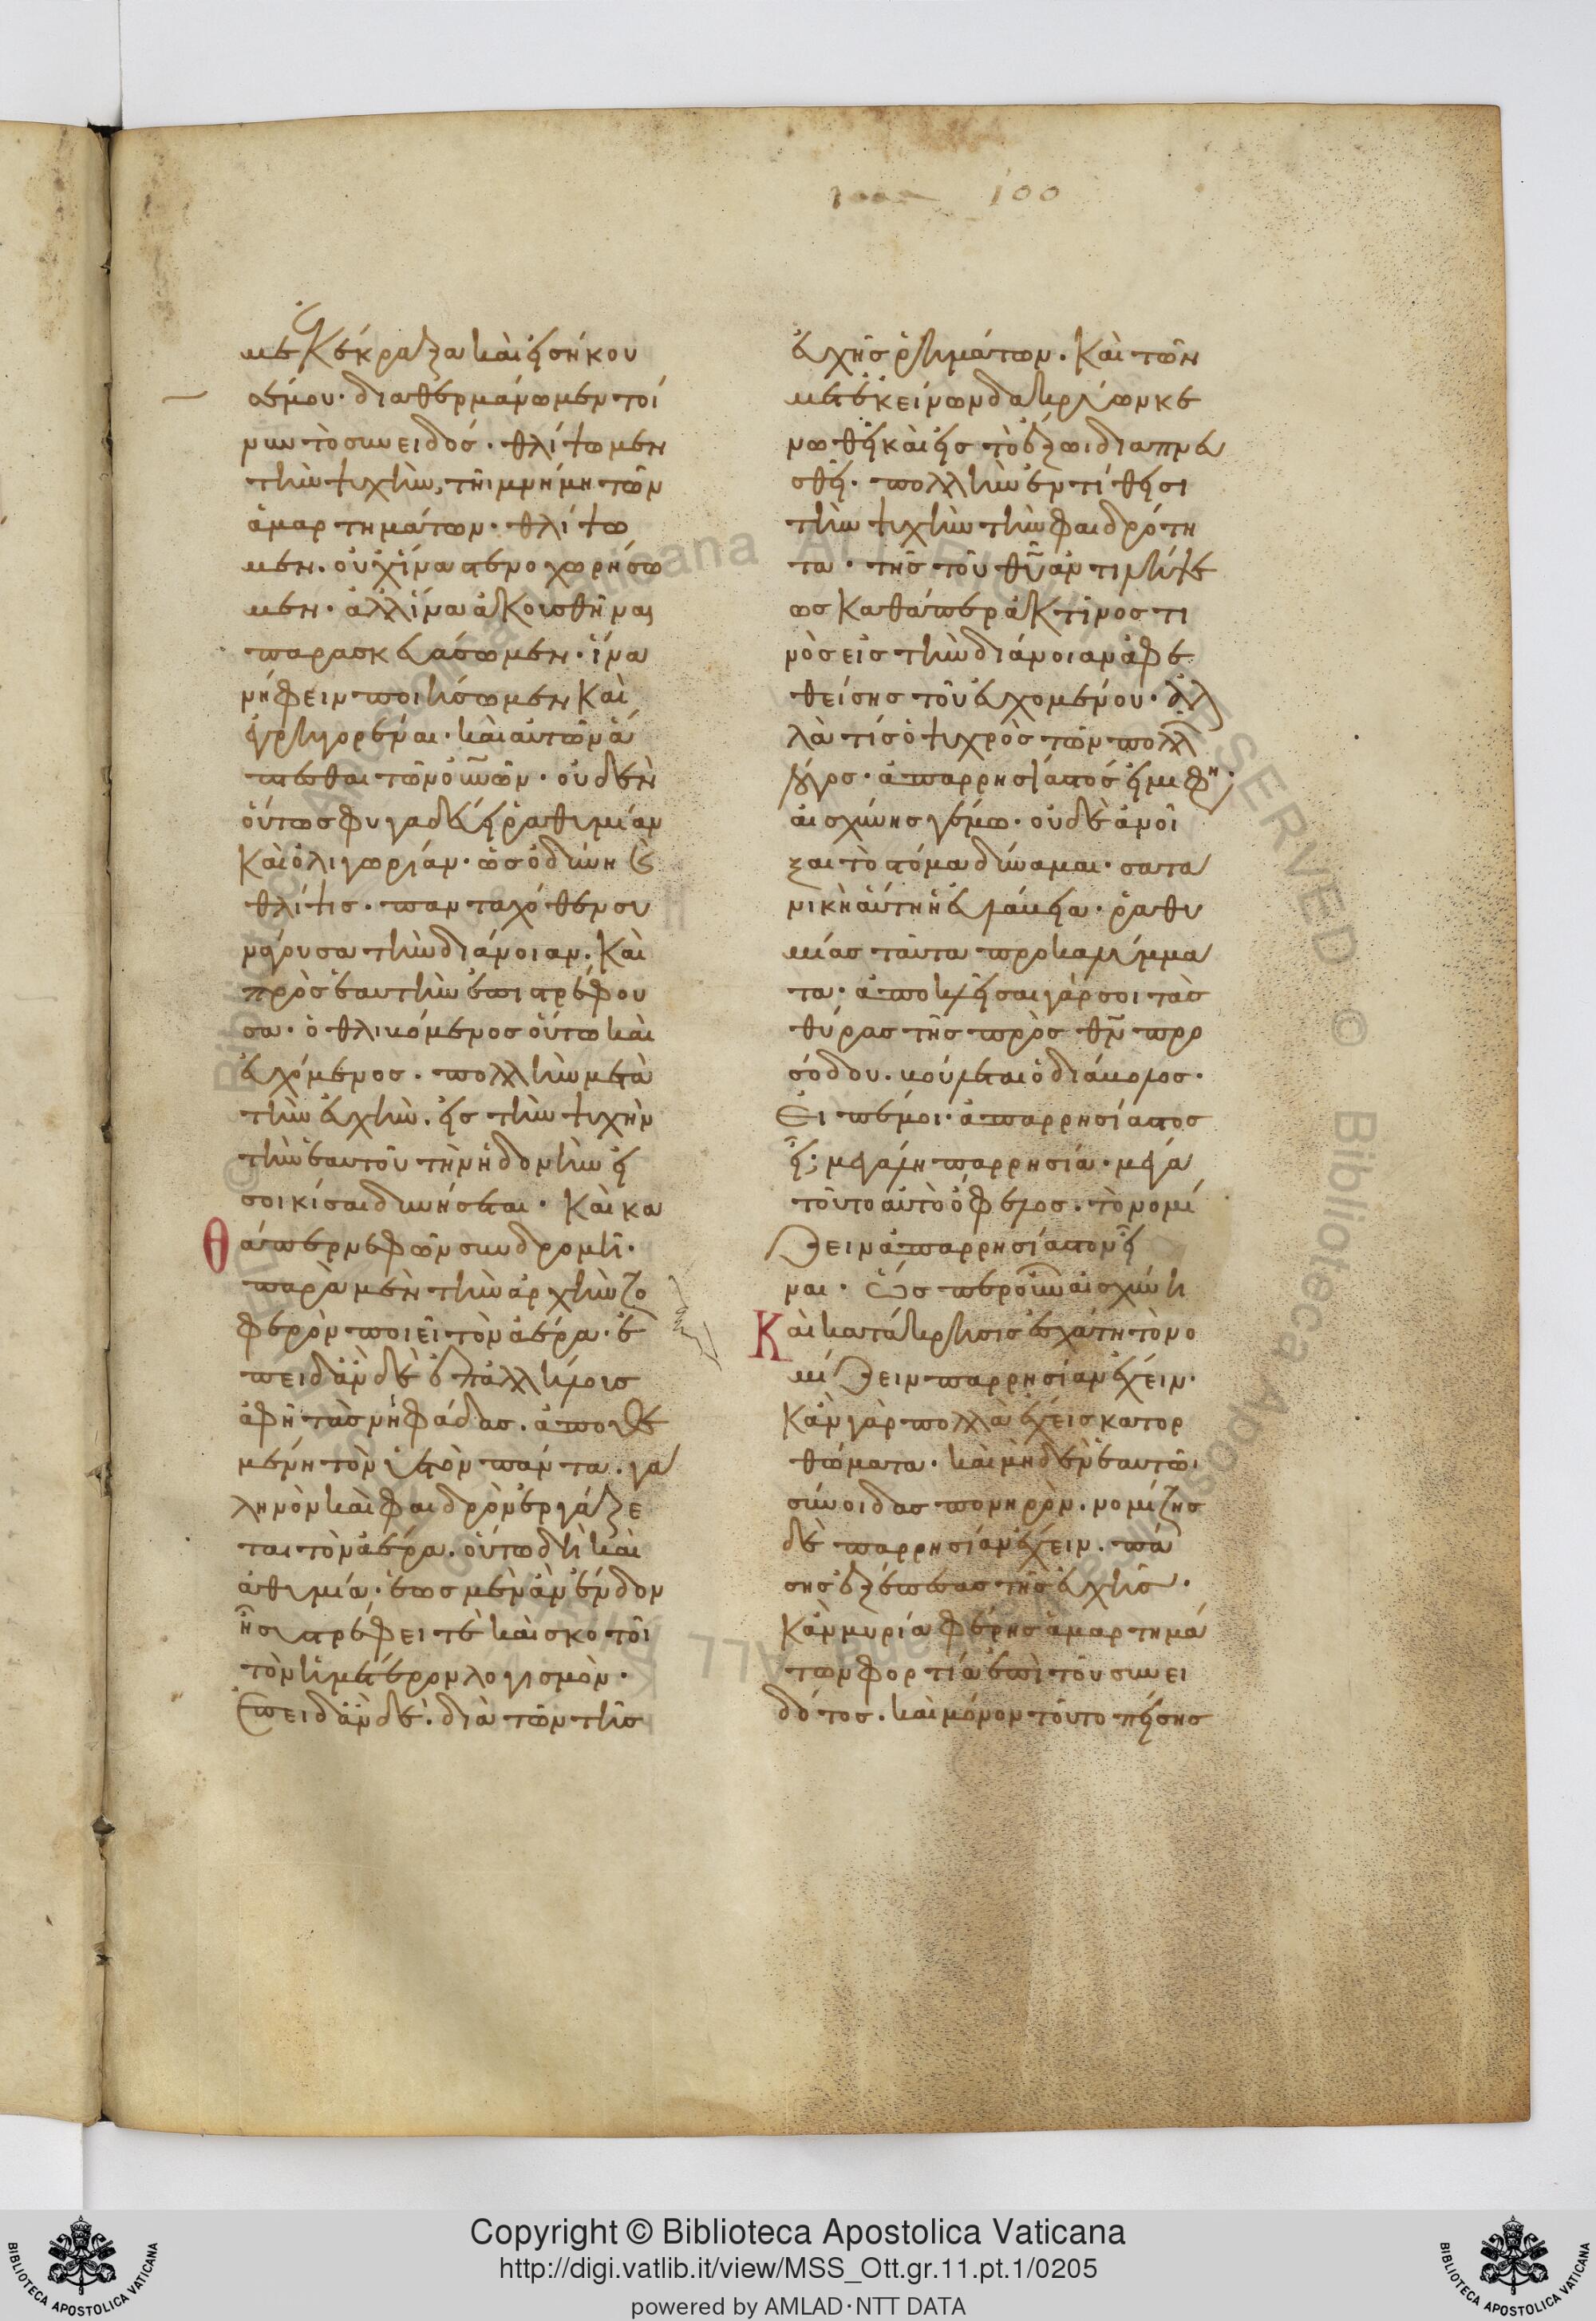 με κέκραξα καὶ εἰσήκου
σέ μου· διαθερμάνωμεν τοί
νυν τὸ συνειδός· θλίψωμεν
τὴν ψυχὴν, τῆι μνήμη τῶν
ἁμαρτημάτων· θλίψω
μεν· οὐχ ἵνα στενοχωρήσω
μεν· ἀλλ ἵνα ἀκουσθῆναι
παρασκευάσωμεν· ἵνα
νήφειν ποιήσωμεν καὶ
ἐγρηγορέναι· καὶ αὐτῶν ἅ
πτεσθαι τῶν οὐνῶν· οὐδὲν
οὕτως φυγαδεύει ῥαθυμίαν
καὶ ὀλιγωρίαν· ὡς ὀδύνη καὶ
θλίψις· πανταχόθεν συ
νάγουσα τὴν διάνοιαν· καὶ
πρὸς ἑαυτὴν ἐπιστρέφου
σα· ὁ θλιβόμενος οὕτω καὶ
εὐχόμενος· πολλὴν μετὰ
τὴν εὐχὴν· εἰς τὴν ψυχὴν
τὴν ἑαυτοῦ τὴν ἡδονὴν εἰ
σοικίσαι δυνήσεται· καὶ κα
θάπερ νεφῶν συνδρομὴ·
παρὰ μὲν τὴν ἀρχὴν ζο
φερὸν ποιεῖ τὸν ἀέρα· ἐ
πειδὰν δὲ ἐπαλλήλους
ἀφῆ τὰς νιφάδας· ἀποθε
μένη τὸν ὑετὸν πάντα· γα
ληνὸν καὶ φαιδρὸν ἐργάζε
ται τὸν ἀέρα· οὕτω δὴ καὶ
ἀθυμία· ἕως μὲν ἂν ἔνδον
ῆ συστρέφειτε καὶ σκοτοῖ
τὸν ἡμέτερον λογισμὸν·
ἐπειδὰν δὲ· διὰ τῶν τῆς
εὐχῆς ῥημάτων· καὶ τῶν
μετ ἐκείνων δακρύων κε
νωθῆ καὶ εἰς τὸ ἔξωι διαπνευ
σθῆ· πολλὴν ἐντίθησι
τὴν ψυχὴν τὴν φαιδρότη
τα· τῆς τοῦ θυ ἀντιλήψε
ως καθάπερ ἀκτῖνος τι
νὸς εἰς τὴν διάνοιαν ἀφε
θείσης τοῦ εὐχομένου· ἀλ
λὰ τίς ὁ ψυχρὸς τῶν πολλ
λόγος· ἀπαρρησίαστός εἰμι φη·
αἰσχύνης γέμω· οὐδὲ ἀνοῖ
ξαι τὸ στόμα δύναμαι· σατα
νικὴ αὕτη ἡ εὐλάβεια· ῥαθυ
μίας ταῦτα προκαλύμμα
τα· ἀποκλεῖσαι γάρ σοι τὰς
θύρας τῆς πρὸς θν προ
σόδου· βούλεται ὁ διάβολος·
Εἰπέ μοι· ἀπαρρησίαστος
εἶ; μεγάλη παρρησία· μέγα
τοῦτο αὐτὸ ὄφελος· τὸ νομί
ζειν ἀπαρρησίαστον εἶ
ναι· ὥσπερ οὖν αἰσχύνη
καὶ κατάκρισις ἐσχάτη τὸ νο
μίζειν παρρησίαν ἔχειν·
κἂν γὰρ πολλὰ ἔχεις κατορ
θώματα· καὶ μηδὲν ἑαυτῶι
σύνοιδας πονηρὸν· νομίζης
δὲ παρρησίαν ἔχειν· πά
σης ἐξέπεσας τῆς εὐχῆς·
κἂν μυρία φέρης ἁμαρτημά
των φορτία ἐπὶ τοῦ συνει
δότος· καὶ μόνον τοῦτο πείσης
100
Copyright © Biblioteca Apostolica Vaticana
http://digi.vatlib.it/view/MSS_Ott.gr.11.pt.1/0205
powered by AMLAD·NTT DATA